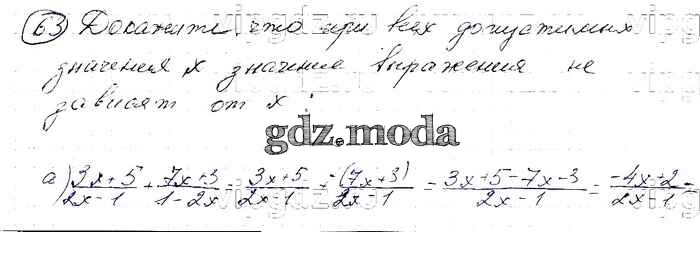 63 Докажите, что при всех допустимых
значения x значение выражения не
зависят от x :
gdz.moda
а) \frac{3x+5}{2x-1} + \frac{7x+3}{1-2x} = \frac{3x+5}{2x-1} + \frac{-(7x+3)}{2x-1} = \frac{3x+5-7x-3}{2x-1} = \frac{-4x+2}{2x-1} =